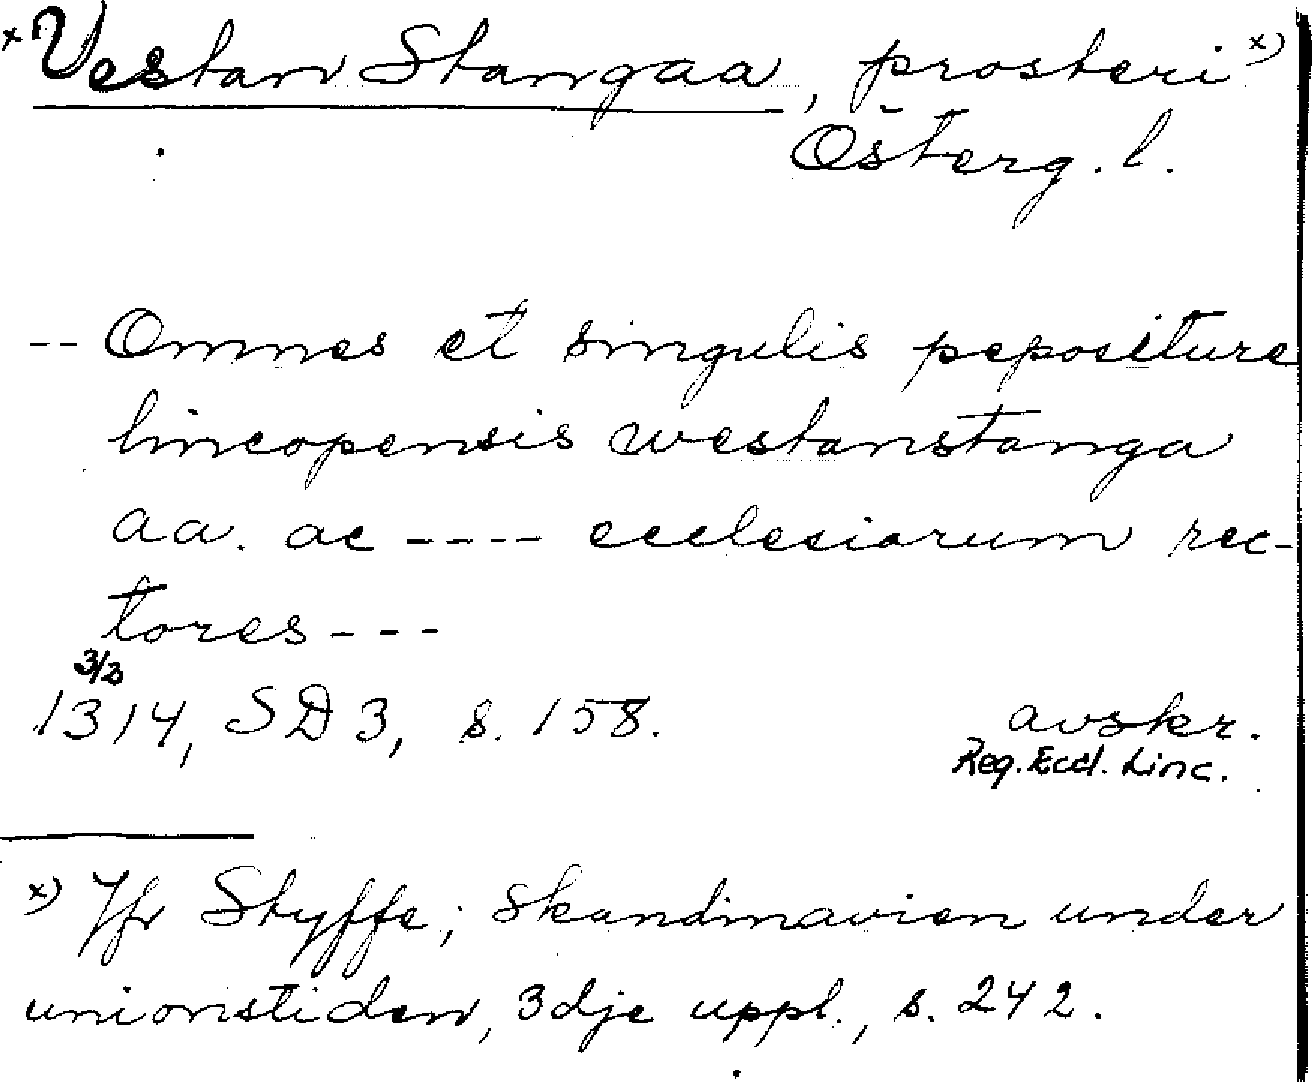 x Vestan Stangaa, prosteri x)
Österg. l.
-- Omnes et singulis peposit​ure
lincopensis westanstanga
aa. ac ---- ecclesiarum rec-
tores ---
3/3
1314, SD 3, s. 158. avskr.
Reg. Eccl. Linc.
x) Jfr Styffe; Skandinavien under
unionstiden, 3dje uppl., s. 242.